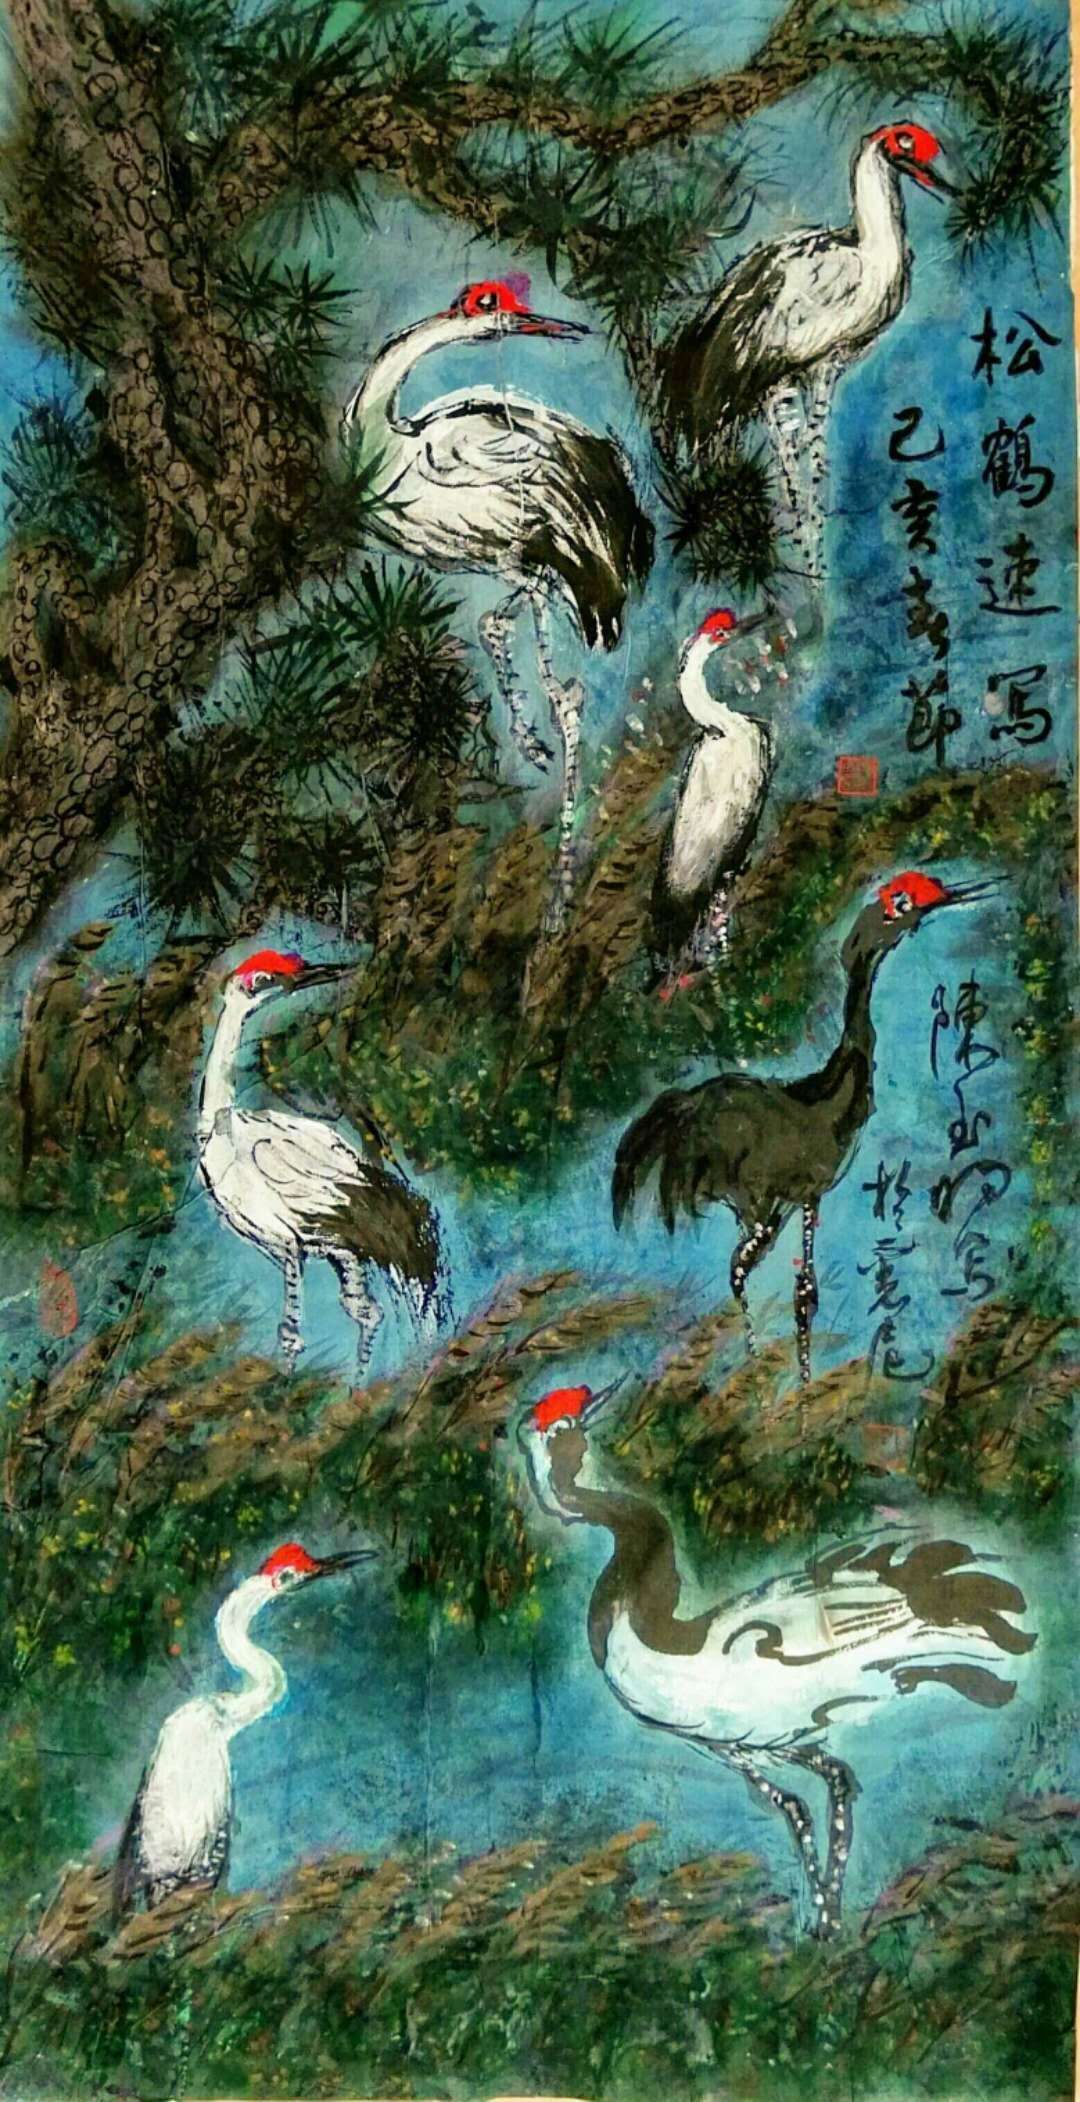 松鶴速寫
己亥春節
陳玉明寫
於